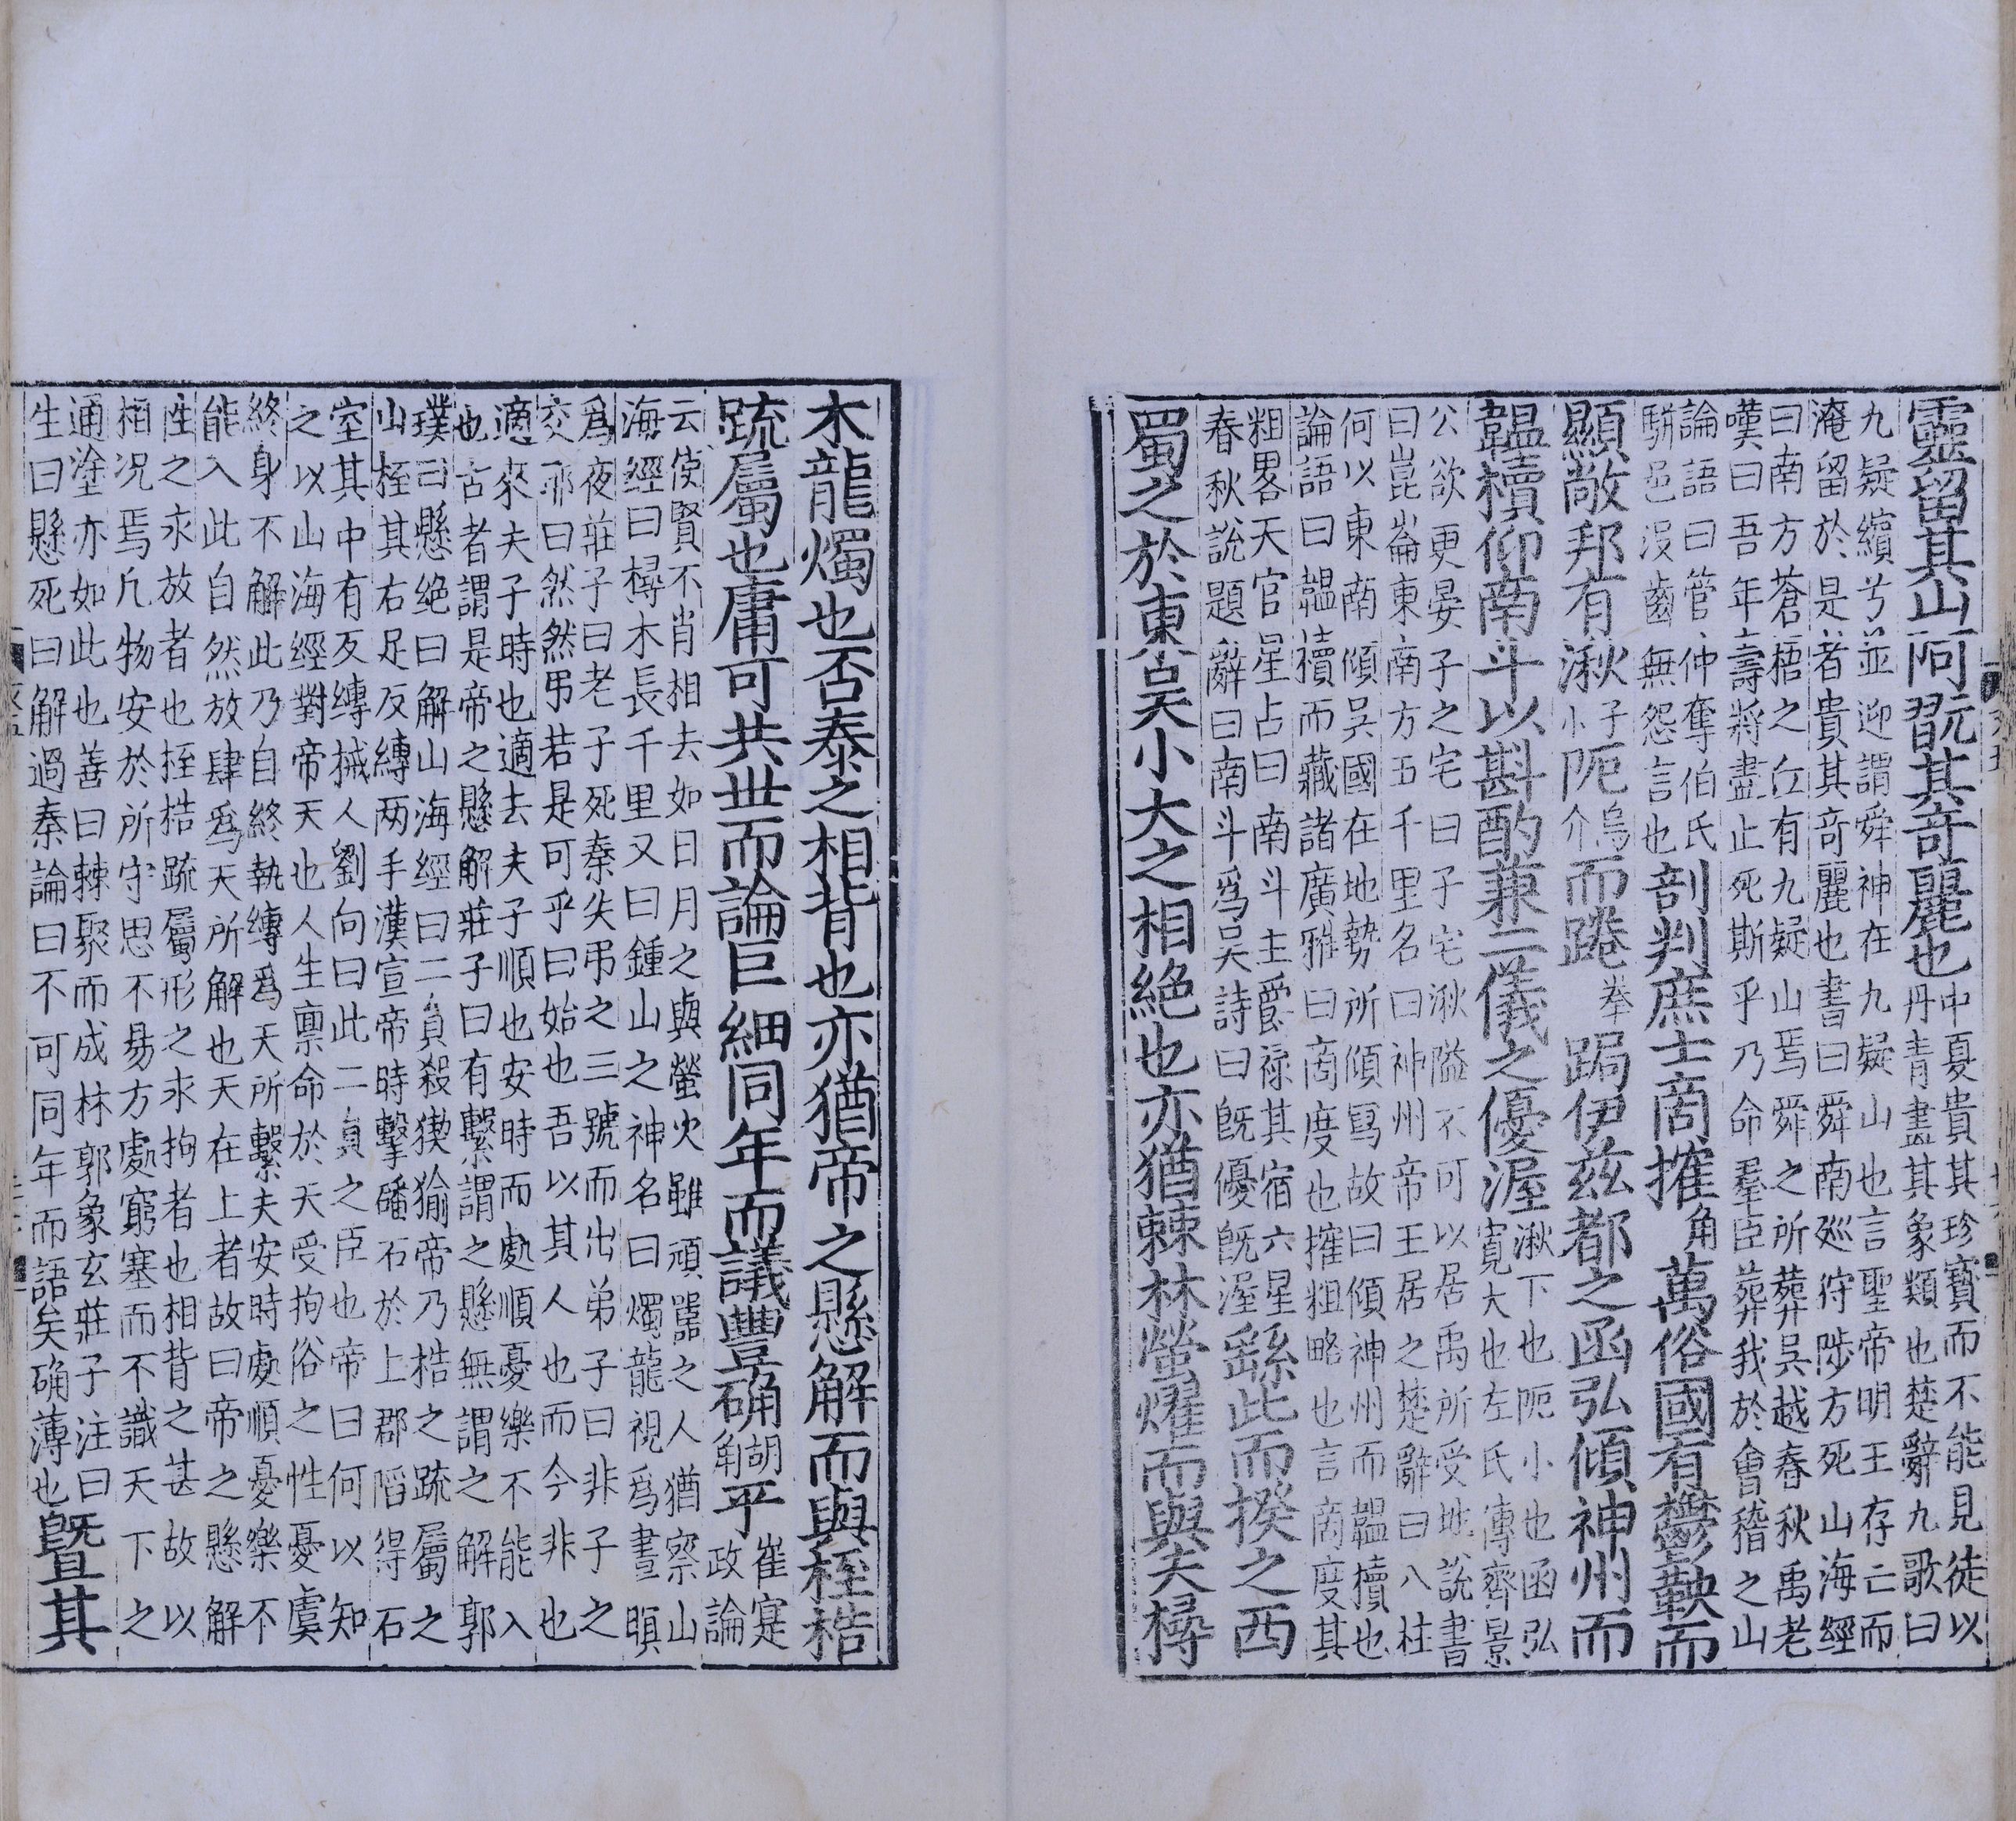 靈留其山阿翫其奇麗也中夏貴其珍寳而不能見徒以
丹青畫其象類也楚辭九歌曰
九疑繽兮並迎謂舜神在九疑山也言聖帝明王存亡而
淹留於是者貴其奇麗也書曰舜南廵狩陟方死山海經
曰南方蒼梧之丘有九疑山焉舜之所葬吳越春秋禹老
嘆曰吾年壽將盡止死斯乎乃命羣臣葬我於會稽之山
論語曰管仲奪伯氏
駢邑沒齒無怨言也剖判庶士商搉角萬俗國有鬱鞅而
顯敞邦有湫子小阨烏介而踡拳跼伊兹都之函弘傾神州而
韞櫝仰南斗以斟酌兼二儀之優渥湫下也阨小也函弘
寬大也左氏傳齊景
公欲更晏子之宅曰子宅湫隘不可以居禹所受地說書
曰崑崙東南方五千里名曰神州帝王居之楚辭曰八柱
何以東南傾吳國在地勢所傾寫故曰傾神州而韞櫝也
論語曰韞櫝而藏諸廣雅曰商度也搉粗略也言商度其
粗畧天官星占曰南斗主爵祿其宿六星
春秋說題辭曰南斗爲吳詩曰旣優旣渥繇此而揆之西
蜀之於東吳小大之相絶也亦猶棘林螢燿而與夫樳
木龍燭也否泰之相背也亦猶帝之懸解而與桎梏
疏屬也庸可共世而論巨細同年而議豐确胡角乎崔寔
政論
云使賢不肖相去如日月之與螢火雖頑嚚之人猶察山
海經曰樳木長千里又曰鍾山之神名曰燭龍視爲晝瞑
爲夜莊子曰老子死秦失弔之三號而出弟子曰非子之
交邪曰然然弔若是可乎曰始也吾以其人也而今非也
適來夫子時也適去夫子順也安時而處順憂樂不能入
也古者謂是帝之懸解莊子曰有繫謂之懸無謂之解郭
璞曰懸絶曰解山海經曰二負殺猰㺄帝乃梏之疏屬之
山桎其右足反縛两手漢宣帝時擊磻石於上郡陷得石
室其中有反縛械人劉向曰此二負之臣也帝曰何以知
之以山海經對帝天也人生禀命於天受拘俗之性憂虞
終身不解此乃自終執縛爲天所繫夫安時處順憂樂不
能入此自然放肆爲天所解也天在上者故曰帝之懸解
性之永放者也桎梏疏屬形之永拘者也相背之甚故以
相况焉凡物安於所守思不易方處窮塞而不識天下之
通塗亦如此也善曰棘聚而成林郭象玄莊子注曰
生曰懸死曰解過秦論曰不可同年而語矣确薄也曁其